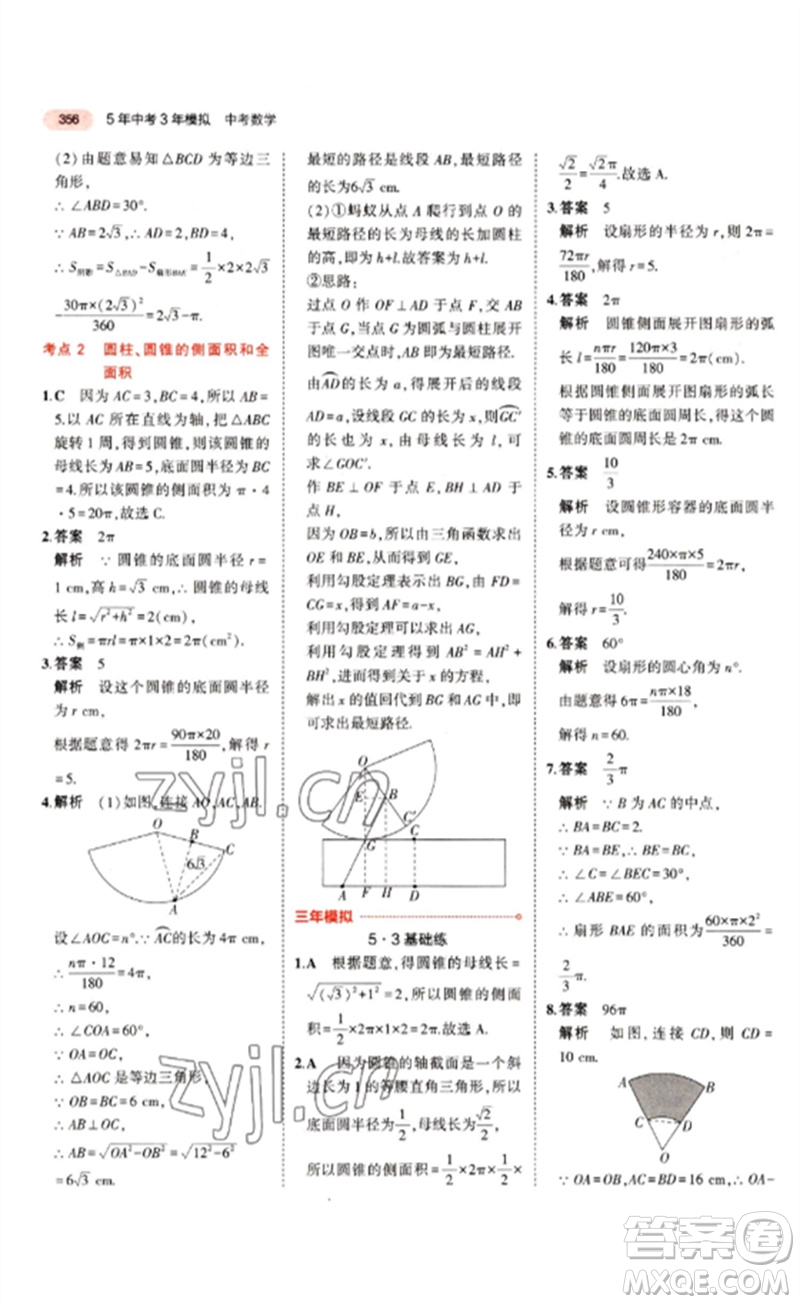 356 5年中考3年模拟 中考数学
(2)由题意易知△BCD为等边三
角形,
∴∠ABD=30°.
∵AB=2√3,BD=4,
∴S阴影=S△BAD-S扇形BAE=1/2×2×2√3
-30π×(2√3)²/360=2√3-π.
考点2 圆柱、圆锥的侧面积和全
面积
1.C 因为AC=3,BC=4,所以AB=
5.以AC所在直线为轴,把△ABC
旋转1周,得到圆锥,则该圆锥的
母线长为AB=5,底面圆半径为BC
=4.所以该圆锥的侧面积为π·4
·5=20π,故选C.
2.答案 2π
解析 ∵圆锥的底面圆半径r=
1 cm,高h=√3 cm,∴圆锥的母线
长l=√(r²+h²)=2(cm),
∴S侧=πrl=π×1×2=2π(cm²).
3.答案 5
解析 设这个圆锥的底面圆半径
为r cm,
根据题意得2πr=90π×20/180,解得r
=5.
4.解析 (1)如图,连接AO,AC,AB.
O
B
C
6√3
A
设∠AOC=n°.∵AC的长为4π cm,
∴nπ·12/180=4π,
∴n=60,
∴∠COA=60°,
∵OA=OC,
∴△AOC是等边三角形,
∵OB=BC=6 cm,
∴AB⊥OC,
∴AB=√(OA²-OB²)=√(12²-6²)
=6√3 cm.
最短的路径是线段AB,最短路径
的长为6√3 cm.
(2)①蚂蚁从点A爬行到点O的
最短路径的长为母线的长加圆柱
的高,即为h+l.故答案为h+l.
②思路:
过点O作OF⊥AD于点F,交AB
于点G,当点G为圆弧与圆柱上沿
展开图唯一的公共点时,如图.
由AD=a,得展开后的线段
AD=a,设线段GC的长为x,则GC'
的弧长也为x,由母线长为l,可
求∠GOC'.
作BE⊥OF于点E,BH⊥AD于
点H,
因为OB=b,所以由三角函数求出
OE和BE,从而得到GE,
利用勾股定理表示出BG,由FD=
CG=x,得到AF=a-x,
利用勾股定理求出AG,
利用勾股定理得到AB²=AH²+
BH²,进而得到关于x的方程,
解出x的值回代到AB的式子,即
可求出最短路径.
O
E
B
C'
G
C
A
F
H
D
三年模拟
5·3基础练
1.A 根据题意,得圆锥的母线长=
√((√3)²+1²)=2,所以圆锥的侧面
积=1/2×2π×1×2=2π.故选A.
2.A 因为圆锥的轴截面是一个斜
边长为1的等腰直角三角形,所以
底面圆半径为1/2,母线长为√2/2,
所以圆锥的侧面积=1/2×2π×1/2×
√2/2=√2π/4.故选A.
3.答案 5
解析 设扇形的半径为r,则2π=
72πr/180,解得r=5.
4.答案 2π
解析 圆锥侧面展开图扇形的弧
长l=nπr/180=120π×3/180=2π,
根据圆锥侧面展开图扇形的弧长
等于圆锥的底面圆周长,得这个
圆锥的底面周长是2π.
5.答案 10/3
解析 设圆锥形容器的底面圆半
径为r,
根据题意可得240×π×5/180=2πr,
解得r=10/3.
6.答案 60°
解析 设扇形的圆心角为n°.
由题意得6π=nπ×18/180,
解得n=60.
7.答案 2/3π
解析 ∵B为AC的中点,
∴BA=BC=2.
∵BA=BE,∴BC=BE,
∴∠C=∠BEC=30°,
∴∠ABE=60°,
∴扇形BAE的面积为60×π×2²/360=
2/3π.
8.答案 96π
解析 如图,连接CD,则CD=
10 cm.
A
B
C
D
O
∵OA=OB,AC=BD=16 cm,∴OA-
zyjl.cn
zyjl.cn
答案圈
MXQE.COM